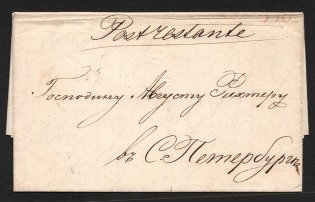 Post restante
Господину Августу Рихтеру
въ С. Петербургѣ